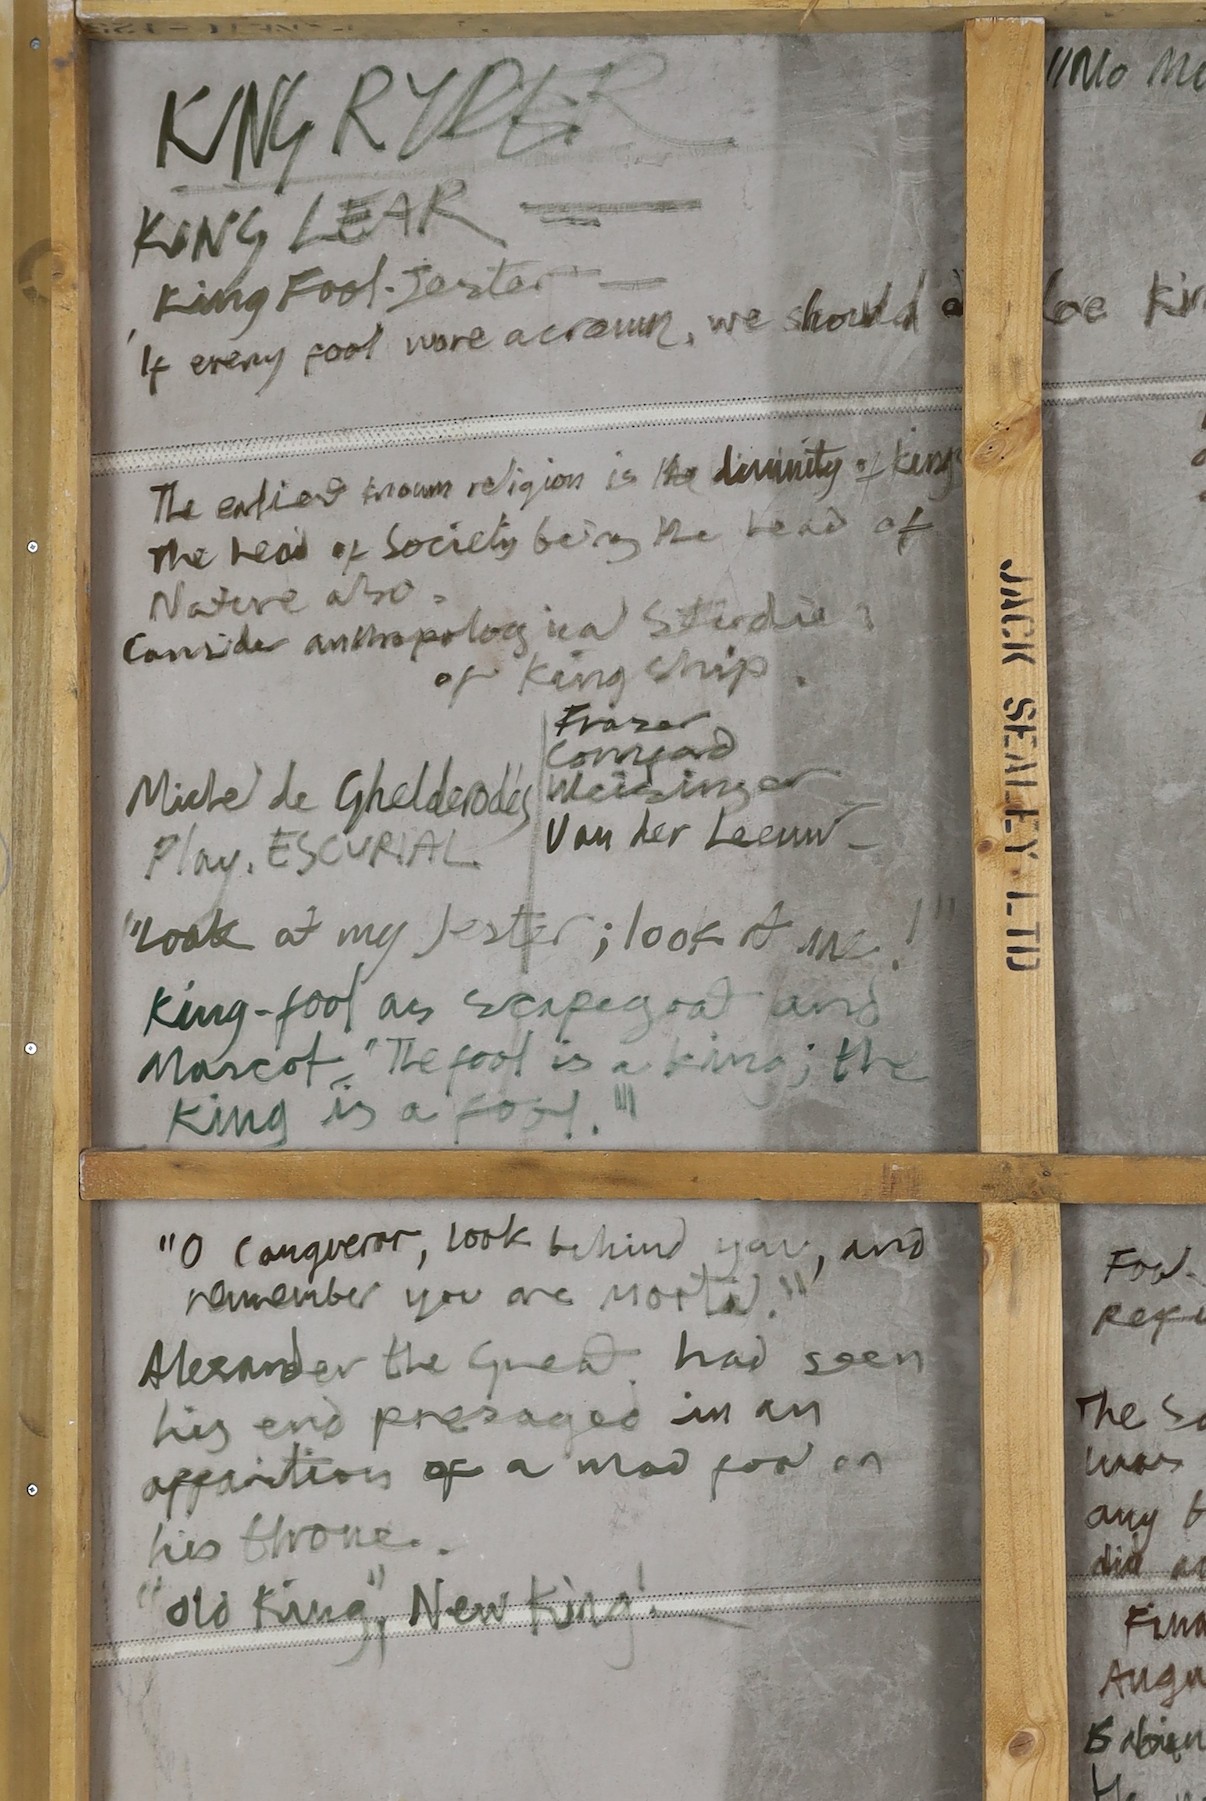 KING RYDER
KING LEAR
King Fool-Jester
'If every fool wore a crown, we should be King
The earliest known religion is the divinity of kings
The head of Society being the head of
Nature also.
Consider anthropological Studies
of kingship.
Frazer
Weisinger
Van der Leeuw
Michel de Ghelderode's
Play. ESCURIAL
"Look at my Jester; look at me!"
King-fool as scapegoat and
Mascot. "The fool is a king; the
King is a fool."
"O Conqueror, look behind you, and
remember you are mortal."
Alexander the Great had seen
his end presaged in an
apparition of a mad fool on
his throne.
"old King", New King!
JACK SEALEY. LTD
"No
Fool-
The
was
any
did